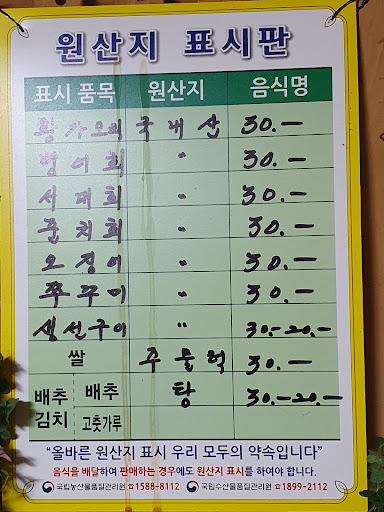 원산지 표시판
표시 품목 원산지 음식명
황가오리 국내산 30.—
병어회 〃 30.—
서대회 〃 30.—
준치회 〃 30.—
오징어 〃 30.—
쭈꾸미 〃 30.—
생선구이 〃 30.—20.—
쌀 주물럭 30.—
배추김치 배추 탕 30.—20.—
고춧가루
“올바른 원산지 표시 우리 모두의 약속입니다”
음식을 배달하여 판매하는 경우에도 원산지 표시를 하여야 합니다.
국립농산물품질관리원 ☎1588-8112 국립수산물품질관리원 ☎1899-2112